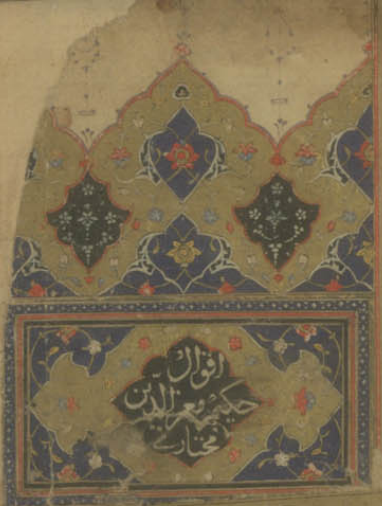 اقوال
حكيم معز الدين
مختارى